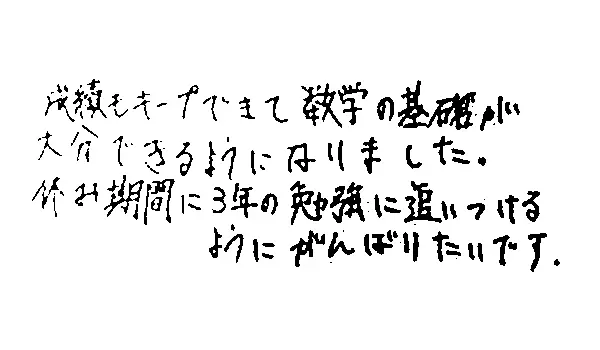 成績もキープできて数学の基礎が
大分できるようになりました。
休み期間に3年の勉強に追いつける
ようにがんばりたいです.